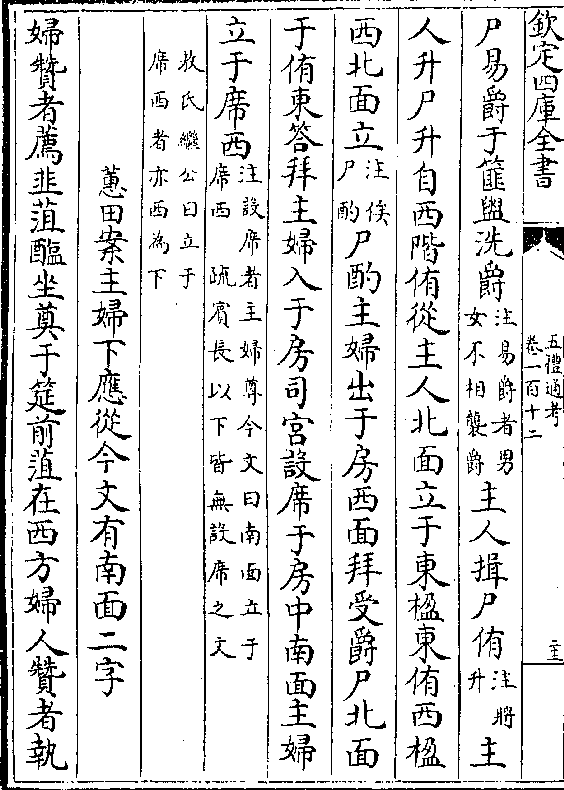 欽定四庫全書
五禮通考
卷一百十二
主
尸易爵于篚盥洗爵注易爵者男女不相襲爵主人揖尸侑注將升主
人升尸升自西階侑從主人北面立于東楹東侑西楹
西北面立注俟尸酌尸酌主婦出于房西面拜受爵尸北面
于侑東答拜主婦入于房司宮設席于房中南面主婦
立于席西注設席者主婦尊今文曰南面立于席西 疏賓長以下皆無設席之文
敖氏繼公曰立于席西者亦西為下
蕙田案主婦下應從今文有南面二字
婦贊者薦韭菹醢坐奠于筵前菹在西方婦人贊者執